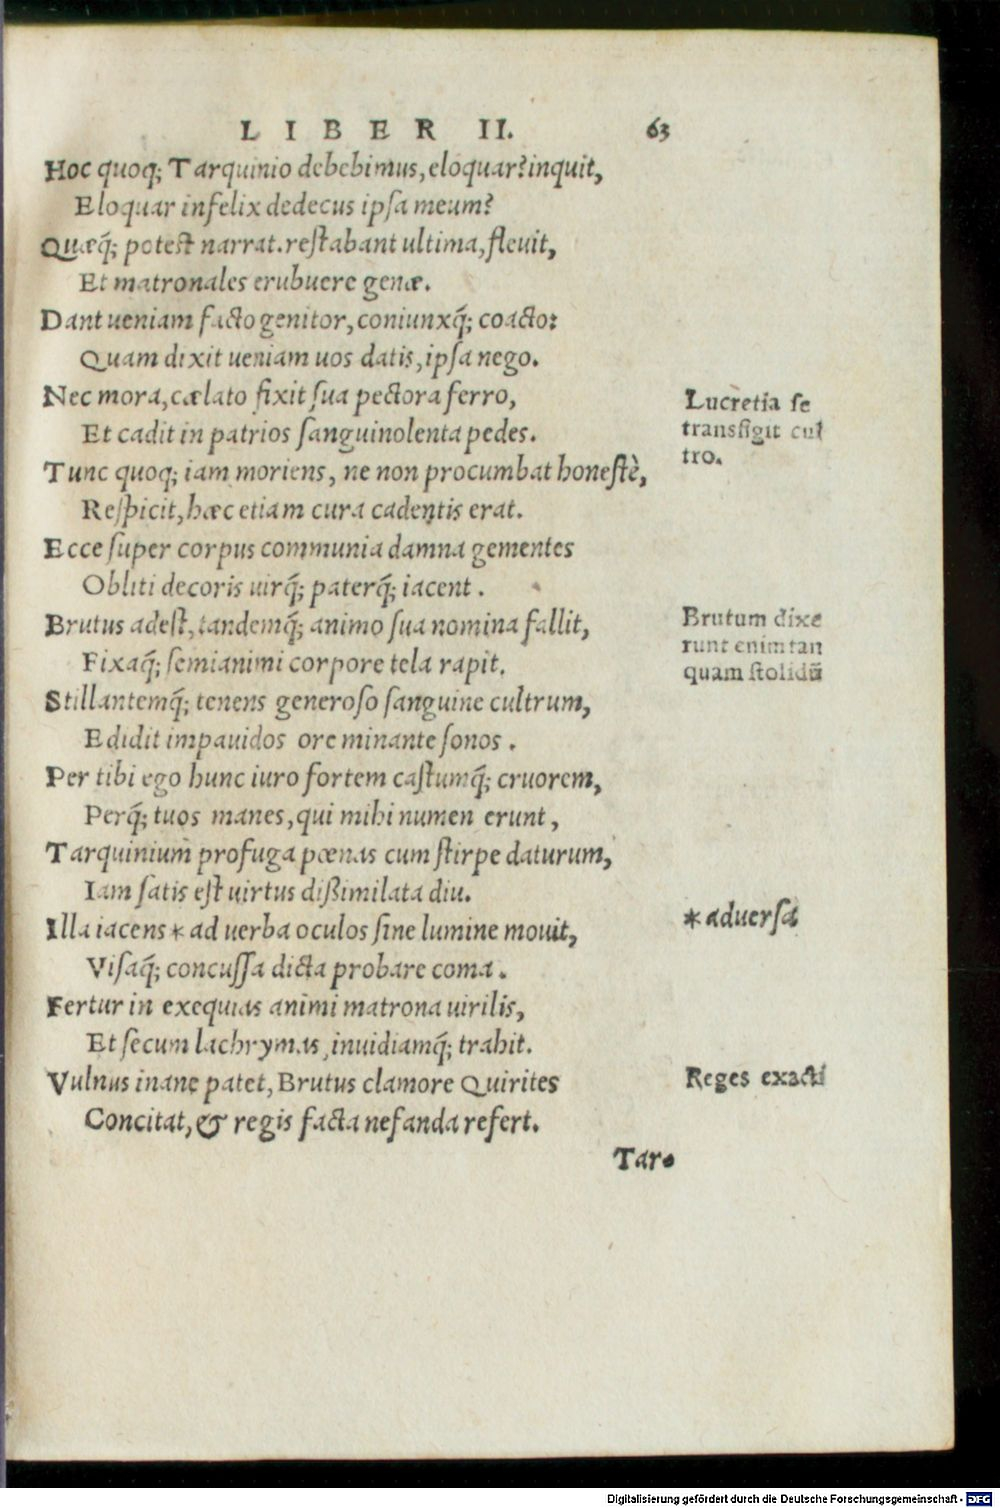 LIBER II. 63
Hoc quoq; Tarquinio debebimus, eloquar? inquit,
Eloquar infelix dedecus ipſa meum?
Quæq́; poteſt narrat. reſtabant ultima, fleuit,
Et matronales erubuere genæ.
Dant ueniam facto genitor, coniunxq́; coacto:
Quam dixit ueniam uos datis, ipſa nego.
Nec mora, cælato fixit ſua pectora ferro,
Et cadit in patrios ſanguinolenta pedes.
Lucretia ſe
transfigit cul
tro.
Tunc quoq; iam moriens, ne non procumbat honeſtè,
Reſpicit, hæc etiam cura cadentis erat.
Ecce ſuper corpus communia damna gementes
Obliti decoris uirq́; paterq́; iacent.
Brutus adeſt, tandemq́; animo ſua nomina fallit,
Fixaq́; ſemianimi corpore tela rapit.
Brutum dixe
runt enim tan
quam ſtolidũ
Stillantemq́; tenens generoſo ſanguine cultrum,
Edidit impauidos ore minante ſonos.
Per tibi ego hunc iuro fortem caſtumq́; cruorem,
Perq́; tuos manes, qui mihi numen erunt,
Tarquinium profuga pœnas cum ſtirpe daturum,
Iam ſatis eſt uirtus dißimilata diu.
Illa iacens * ad uerba oculos ſine lumine mouit,
* aduerſa
Viſaq́; concuſſa dicta probare coma.
Fertur in exequias animi matrona uirilis,
Et ſecum lachrymas, inuidiamq́; trahit.
Vulnus inane patet, Brutus clamore Quirites
Reges exacti
Concitat, & regis facta nefanda refert.
Tar-
Digitalisierung gefördert durch die Deutsche Forschungsgemeinschaft - DFG